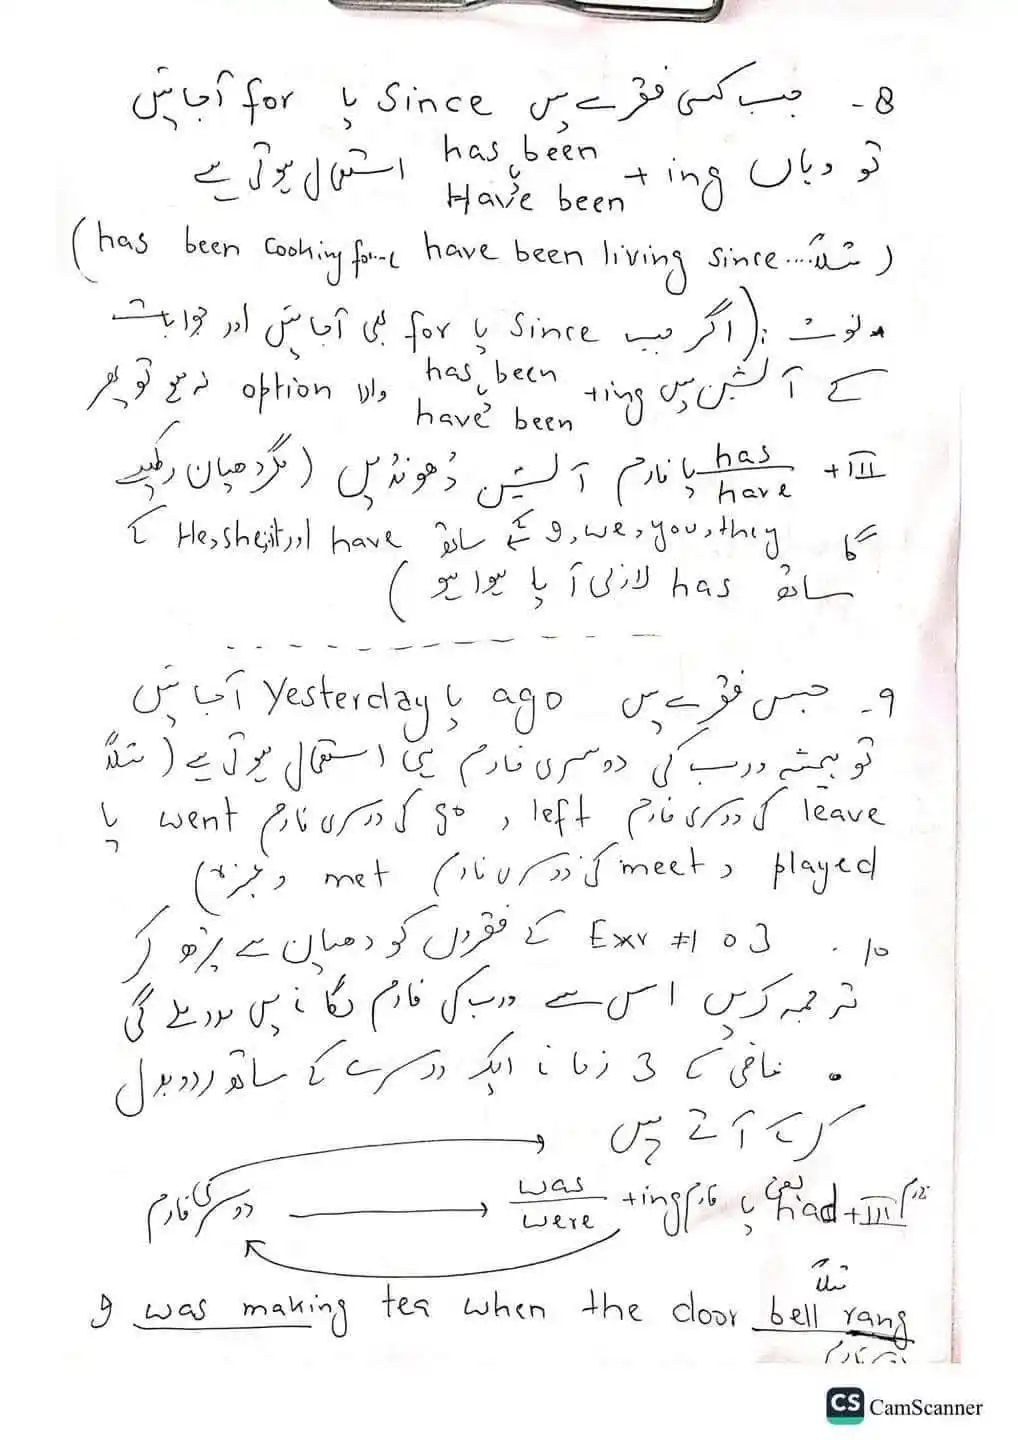 8- جب کسی فقرے میں since یا for آجائیں
تو وہاں has been یا have been + ing استعمال ہوتی ہے
(مثلاً have been living since.... has been cooking for...)
* نوٹ: (اگر جب since یا for بھی آجائیں اور جوابات
کے آپشن میں has been یا have been +ing والا option نہ ہو تو پھر
has/have + III یا فارم آپشن ڈھونڈیں (مگر دھیان رکھیے
گا I, we, you, they کے ساتھ have اور He, she, it کے
ساتھ has لازمی آیا ہوا ہو)
9- جس فقرے میں ago یا Yesterday آجائیں
تو ہمیشہ ورب کی دوسری فارم ہی استعمال ہوتی ہے (مثلاً
leave کی دوسری فارم left , go کی دوسری فارم went یا
played , meet کی دوسری فارم met وغیرہ)
10. Exr #103 کے فقروں کو دھیان سے پڑھ کر
ترجمہ کریں اس سے ورب کی فارم لگانے میں مدد ملے گی
• ماضی کے 3 زمانے ایک دوسرے کے ساتھ ردوبدل
کرتے آتے ہیں
دوسری فارم was/were +ing فارم یا had + III فارم
مثلاً
I was making tea when the door bell rang
دوسری فارم
CS CamScanner